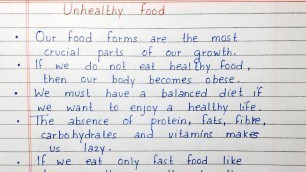 Unhealthy food
• Our food forms are the most
crucial parts of our growth.
• If we do not eat healthy food,
then our body becomes obese.
• We must have a balanced diet if
we want to enjoy a healthy life.
• The absence of protein, fats, fibre,
carbohydrates and vitamins makes
us lazy.
• If we eat only fast food like